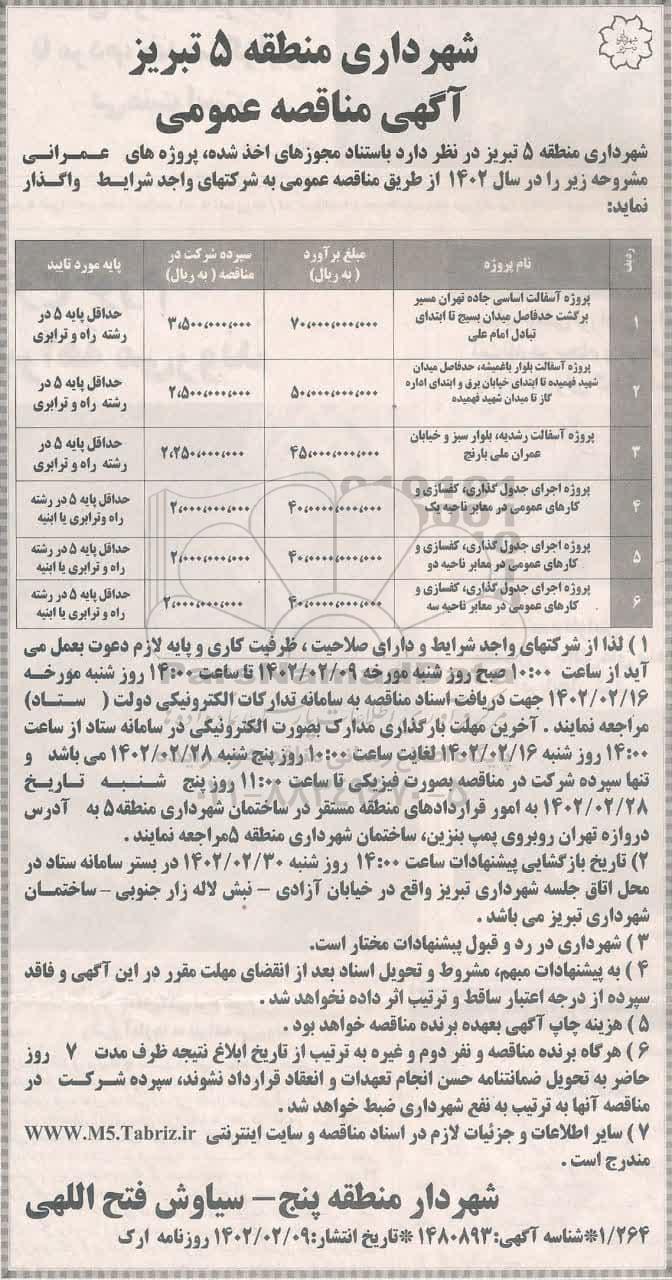 شهرداری منطقه ۵ تبریز
آگهی مناقصه عمومی
شهرداری منطقه ۵ تبریز در نظر دارد باستناد مجوزهای اخذ شده، پروژه های عــمـرانــی
مشروحه زیر را در سال ۱۴۰۲ از طریق مناقصه عمومی به شرکتهای واجد شرایـط واگـذار
نماید:
ردیف | نام پروژه | مبلغ برآورد (به ریال) | سپرده شرکت در مناقصه (به ریال) | پایه مورد تایید
۱ | پروژه آسفالت اساسی جاده تهران مسیر برگشت حدفاصل میدان بسیج تا ابتدای تبادل امام علی | ۷۰,۰۰۰,۰۰۰,۰۰۰ | ۳,۵۰۰,۰۰۰,۰۰۰ | حداقل پایه ۵ در رشته راه و ترابری
۲ | پروژه آسفالت بلوار باغمیشه، حدفاصل میدان شهید فهمیده تا ابتدای خیابان برق و ابتدای اداره گاز تا میدان شهید فهمیده | ۵۰,۰۰۰,۰۰۰,۰۰۰ | ۲,۵۰۰,۰۰۰,۰۰۰ | حداقل پایه ۵ در رشته راه و ترابری
۳ | پروژه آسفالت رشدیه، بلوار سبز و خیابان عمران ملی بارنج | ۴۵,۰۰۰,۰۰۰,۰۰۰ | ۲,۲۵۰,۰۰۰,۰۰۰ | حداقل پایه ۵ در رشته راه و ترابری
۴ | پروژه اجرای جدول گذاری، کفسازی و کارهای عمومی در معابر ناحیه یک | ۴۰,۰۰۰,۰۰۰,۰۰۰ | ۲,۰۰۰,۰۰۰,۰۰۰ | حداقل پایه ۵ در رشته راه وترابری یا ابنیه
۵ | پروژه اجرای جدول گذاری، کفسازی و کارهای عمومی در معابر ناحیه دو | ۴۰,۰۰۰,۰۰۰,۰۰۰ | ۲,۰۰۰,۰۰۰,۰۰۰ | حداقل پایه ۵ در رشته راه و ترابری یا ابنیه
۶ | پروژه اجرای جدول گذاری، کفسازی و کارهای عمومی در معابر ناحیه سه | ۴۰,۰۰۰,۰۰۰,۰۰۰ | ۲,۰۰۰,۰۰۰,۰۰۰ | حداقل پایه ۵ در رشته راه و ترابری یا ابنیه
۱ ) لذا از شرکتهای واجد شرایط و دارای صلاحیت ، ظرفیت کاری و پایه لازم دعوت بعمل می
آید از ساعت ۱۰:۰۰ صبح روز شنبه مورخه ۱۴۰۲/۰۲/۰۹ تا ساعت ۱۴:۰۰ روز شنبه مورخـه
۱۴۰۲/۰۲/۱۶ جهت دریافت اسناد مناقصه به سامانه تدارکات الکترونیکی دولت ( ســتاد)
مراجعه نمایند . آخرین مهلت بارگذاری مدارک بصورت الکترونیکی در سامانه ستاد از ساعت
۱۴:۰۰ روز شنبه ۱۴۰۲/۰۲/۱۶ لغایت ساعت ۱۰:۰۰ روز پنج شنبه ۱۴۰۲/۰۲/۲۸ می باشد و
تنها سپرده شرکت در مناقصه بصورت فیزیکی تا ساعت ۱۱:۰۰ روز پنج شـنـبـه تـاریـخ
۱۴۰۲/۰۲/۲۸ به امور قراردادهای منطقه مستقر در ساختمان شهرداری منطقه۵ به آدرس
دروازه تهران روبروی پمپ بنزین، ساختمان شهرداری منطقه ۵مراجعه نمایند .
۲) تاریخ بازگشایی پیشنهادات ساعت ۱۴:۰۰ روز شنبه ۱۴۰۲/۰۲/۳۰ در بستر سامانه ستاد در
محل اتاق جلسه شهرداری تبریز واقع در خیابان آزادی – نبش لاله زار جنوبی – ساختمــان
شهرداری تبریز می باشد .
۳ ) شهرداری در رد و قبول پیشنهادات مختار است.
۴ ) به پیشنهادات مبهم، مشروط و تحویل اسناد بعد از انقضای مهلت مقرر در این آگهی و فاقد
سپرده از درجه اعتبار ساقط و ترتیب اثر داده نخواهد شد .
۵ ) هزینه چاپ آگهی بعهده برنده مناقصه خواهد بود .
۶ ) هرگاه برنده مناقصه و نفر دوم و غیره به ترتیب از تاریخ ابلاغ نتیجه ظرف مدت ۷ روز
حاضر به تحویل ضمانتنامه حسن انجام تعهدات و انعقاد قرارداد نشوند، سپرده شــرکــت در
مناقصه آنها به ترتیب به نفع شهرداری ضبط خواهد شد .
۷ ) سایر اطلاعات و جزئیات لازم در اسناد مناقصه و سایت اینترنتی WWW.M5.Tabriz.ir
مندرج است .
شهردار منطقه پنج– سیاوش فتح اللهی
۱/۲۶۴*شناسه آگهی:۱۴۸۰۸۹۳ *تاریخ انتشار:۱۴۰۲/۰۲/۰۹ روزنامه ارک